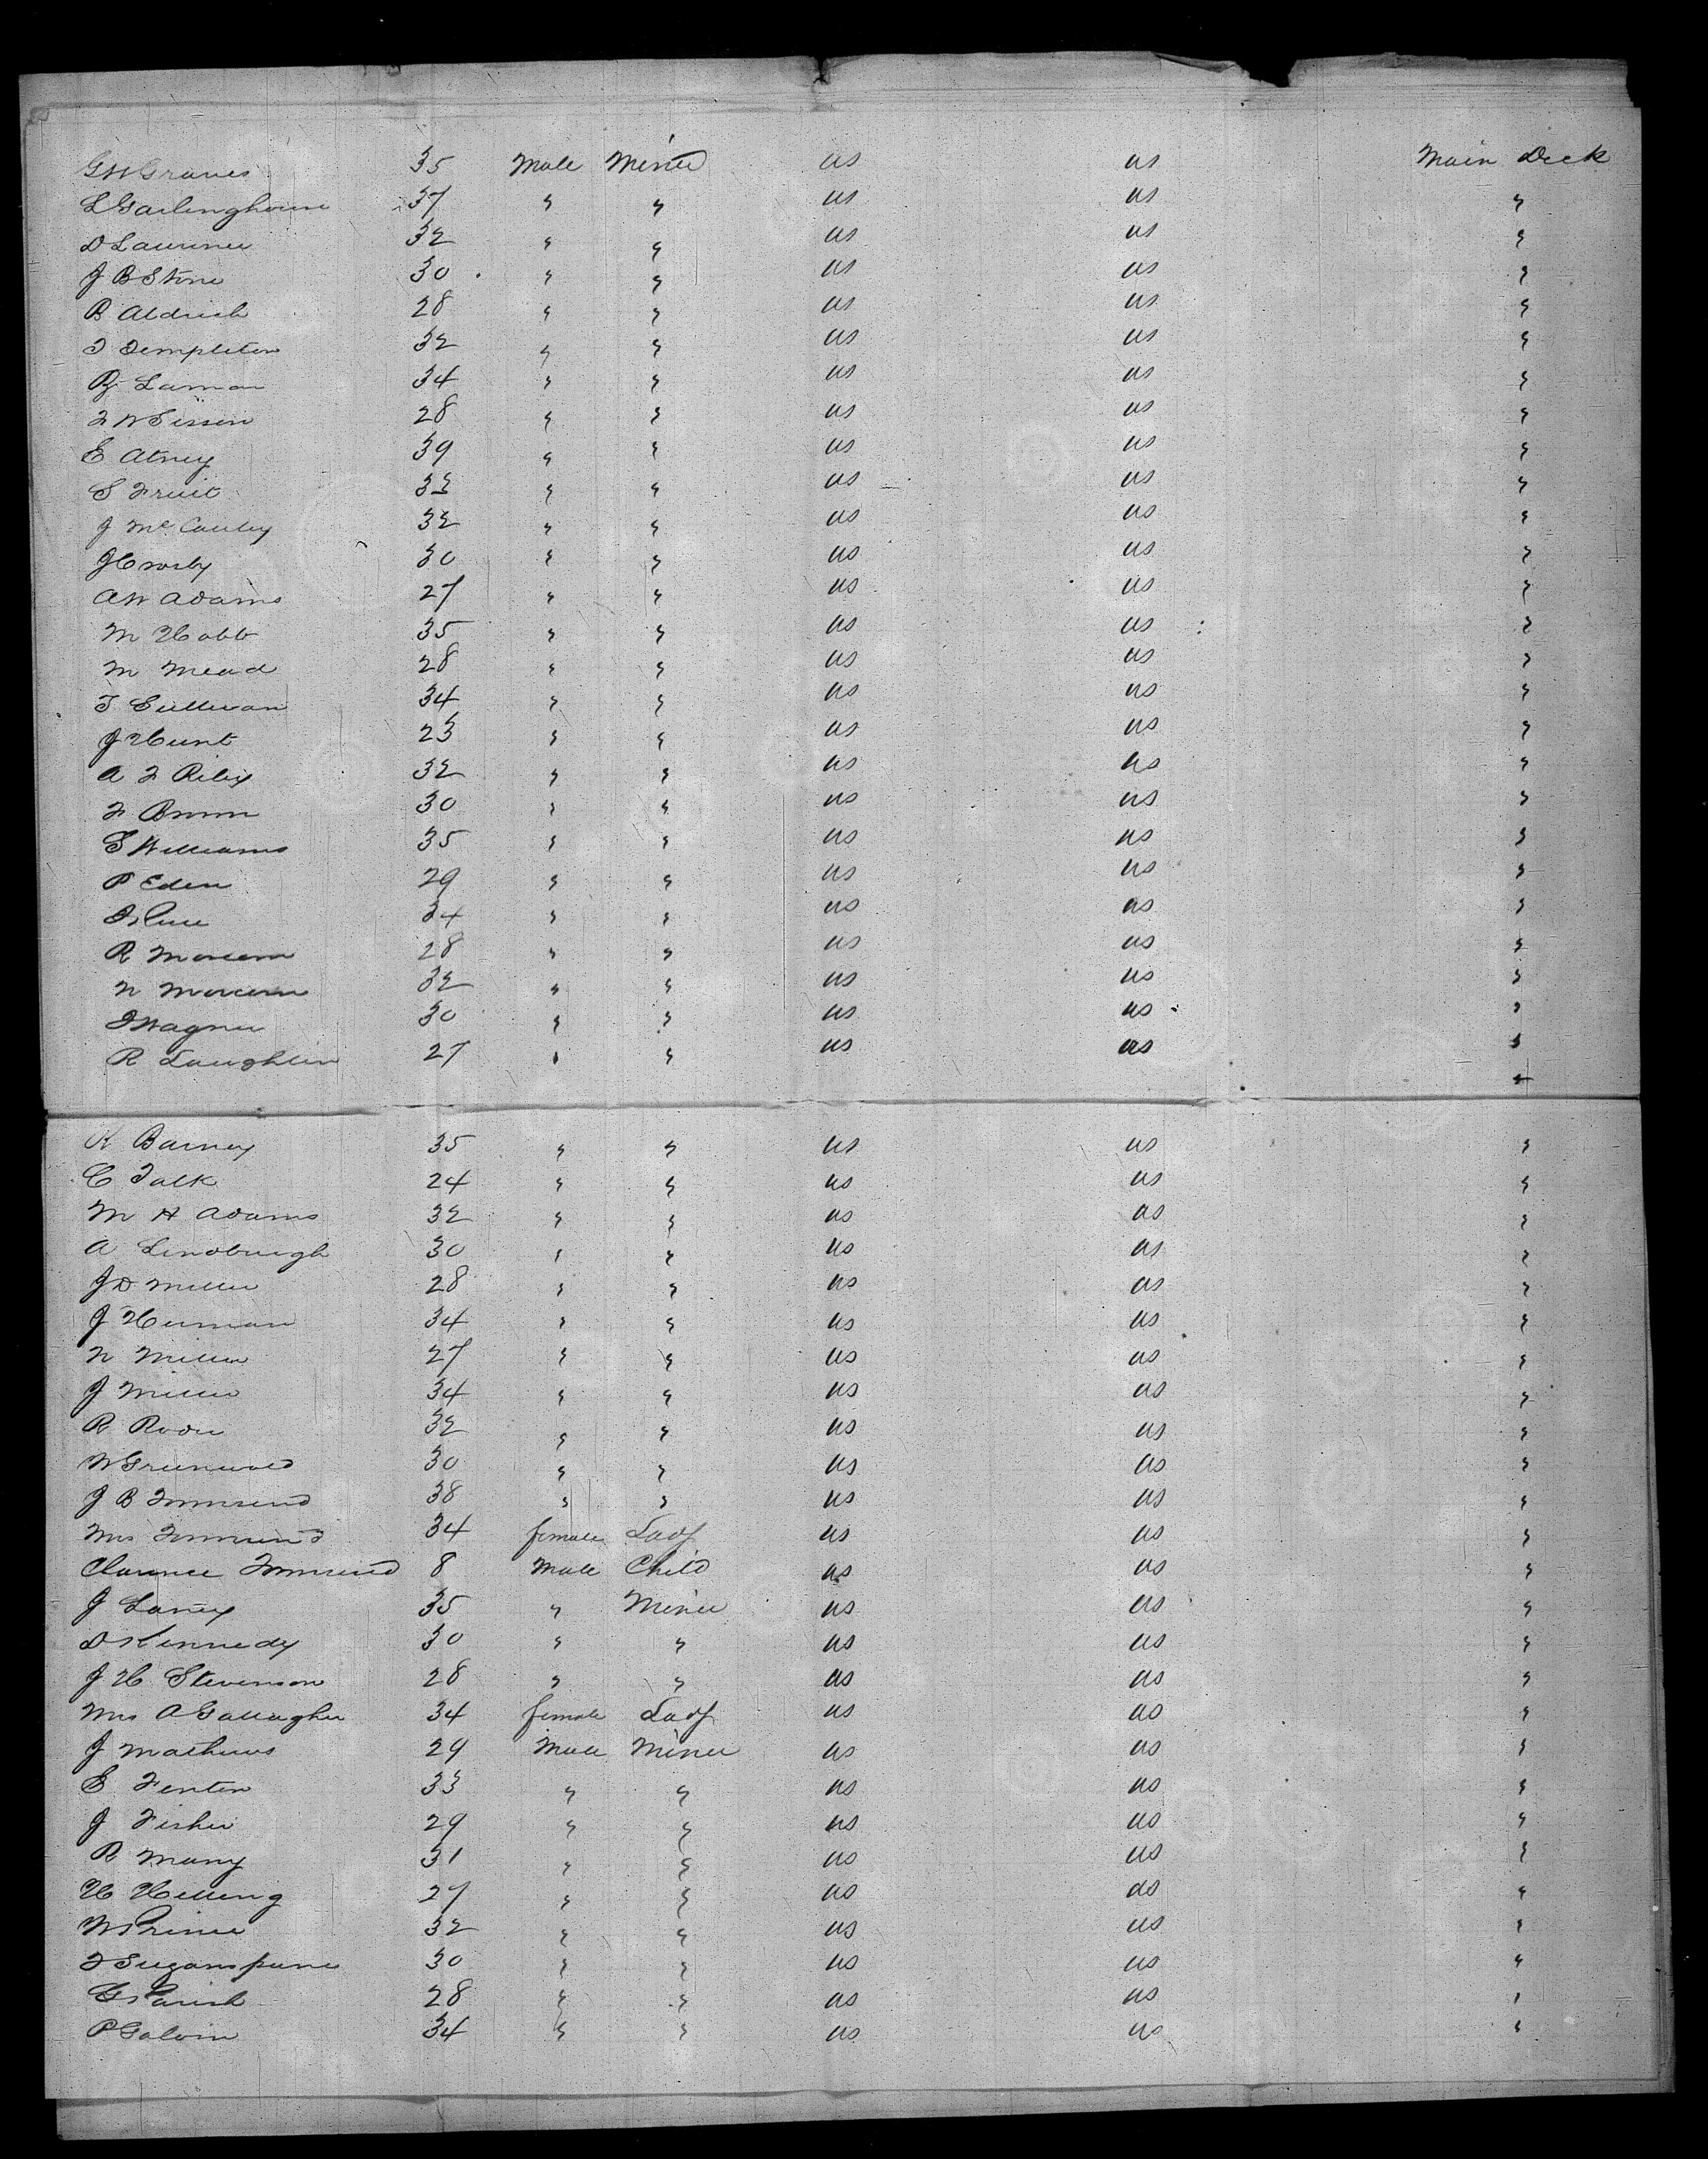 GW Graves 35 Male Miner US US Main Deck
L Garlinghouse 37 " " US US "
D Lawrence 32 " " US US "
J B Stone 30 " " US US "
B Aldrich 28 " " US US "
T Templeton 32 " " US US "
Lamon 34 " " US US "
F W Sisson 28 " " US US "
E Atney 39 " " US US "
S Fruit 33 " " US US "
J McCauley 32 " " US US "
J Crosby 30 " " US US "
AW Adams 27 " " US US "
M Hobb 35 " " US US "
M Mead 28 " " US US "
T Sullivan 34 " " US US "
J Hunt 23 " " US US "
A F Riley 32 " " US US "
F Brown 30 " " US US "
S Williams 35 " " US US "
P Eden 29 " " US US "
34 " " US US "
R 28 " " US US "
N 32 " " US US "
J Wagner 30 " " US US "
R Laughlin 27 " " US US "
"
K Barney 35 " " US US "
C Falk 24 " " US US "
M H Adams 32 " " US US "
A Lindburgh 30 " " US US "
J D Miller 28 " " US US "
J Herman 34 " " US US "
N Miller 27 " " US US "
J Miller 34 " " US US "
R 32 " " US US "
W 30 " " US US "
J B Townsend 38 " " US US "
Mrs Townsend 34 female Lady US US "
Clarence Townsend 8 Male Child US US "
J Laney 35 " Miner US US "
D Kennedy 30 " " US US "
J H Stevenson 28 " " US US "
Mrs A Gallagher 34 female Lady US US "
J Mathews 29 Male Miner US US "
E Fenton 33 " " US US "
J Fisher 29 " " US US "
R Many 31 " " US US "
H Helling 27 " " US US "
W Prince 32 " " US US "
30 " " US US "
G Parish 28 " " US US "
P Galvin 34 " " US US "